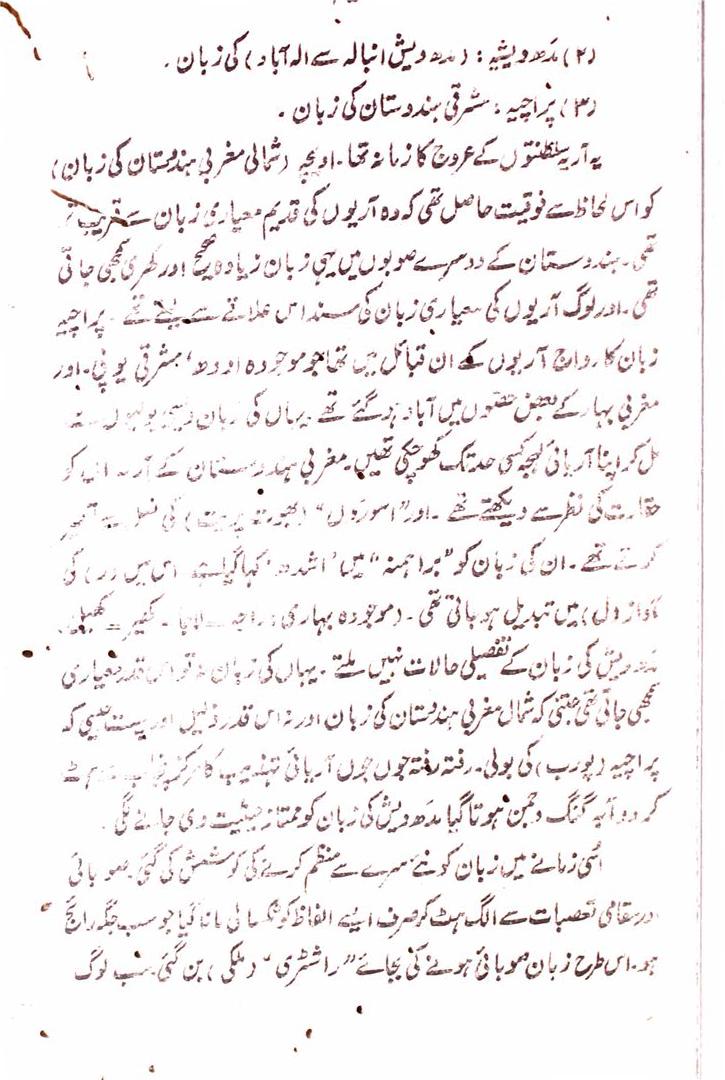 (۲) مدھ دیشیہ : (مدھ دیش انبالہ سے الہ آباد) کی زبان ۔
(۳) پراچیہ : مشرقی ہندوستان کی زبان ۔
یہ آریہ سلطنتوں کے عروج کا زمانہ تھا ۔ اودیچیہ (شمالی مغربی ہندوستان کی زبان)
کو اس لحاظ سے فوقیت حاصل تھی کہ وہ آریوں کی قدیم معیاری زبان سے قریب تر
تھی ۔ ہندوستان کے دوسرے صوبوں میں یہی زبان زیادہ صحیح اور کھری سمجھی جاتی
تھی ۔ اور لوگ آریوں کی معیاری زبان کی سند اس علاقے سے لیتے تھے ۔ پراچیہ
زبان کا رواج آریوں کے ان قبائل میں تھا جو موجودہ اودھ ، مشرقی یوپی ۔ اور
مغربی بہار کے بعض حصوں میں آباد ہو گئے تھے ۔ یہاں کی زبان دیسی بولیوں سے
مل کر اپنا آریائی لہجہ کسی حد تک کھو چکی تھیں ۔ مغربی ہندوستان کے آریہ ان کو
حقارت کی نظر سے دیکھتے تھے ۔ اور "اسوروں" (بھوت پریت) کی نسل سے تعبیر
کرتے تھے ۔ ان کی زبان کو "براہمنہ" میں 'اشدھ' کہا گیا ہے اس میں (ر) کی
آواز (ل) میں تبدیل ہو جاتی تھی ۔ (موجودہ بہاری : راجہ سے لاجا ۔
مدھ دیش کی زبان کے تفصیلی حالات نہیں ملتے ۔ یہاں کی زبان نہ تو اس قدر معیاری
سمجھی جاتی تھی جتنی کہ شمال مغربی ہندوستان کی زبان اور نہ اس قدر ذلیل اور پست جیسی کہ
پراچیہ (پورب) کی بولی ۔ رفتہ رفتہ جوں جوں آریائی تہذیب کا مرکز پنجاب سے ہٹ
کر دوآبہ گنگ و جمن ہوتا گیا مدھ دیش کی زبان کو ممتاز حیثیت دی جانے لگی ۔
اسی زمانے میں زبان کو نئے سرے سے منظم کرنے کی کوشش کی گئی ۔ صوبائی
اور مقامی تعصبات سے الگ ہٹ کر صرف ایسے الفاظ کو ٹکسالی مانا گیا جو سب جگہ رائج
ہو ۔ اس طرح زبان صوبائی ہونے کی بجائے "راشٹری" (ملکی) بن گئی ۔ جب لوگ